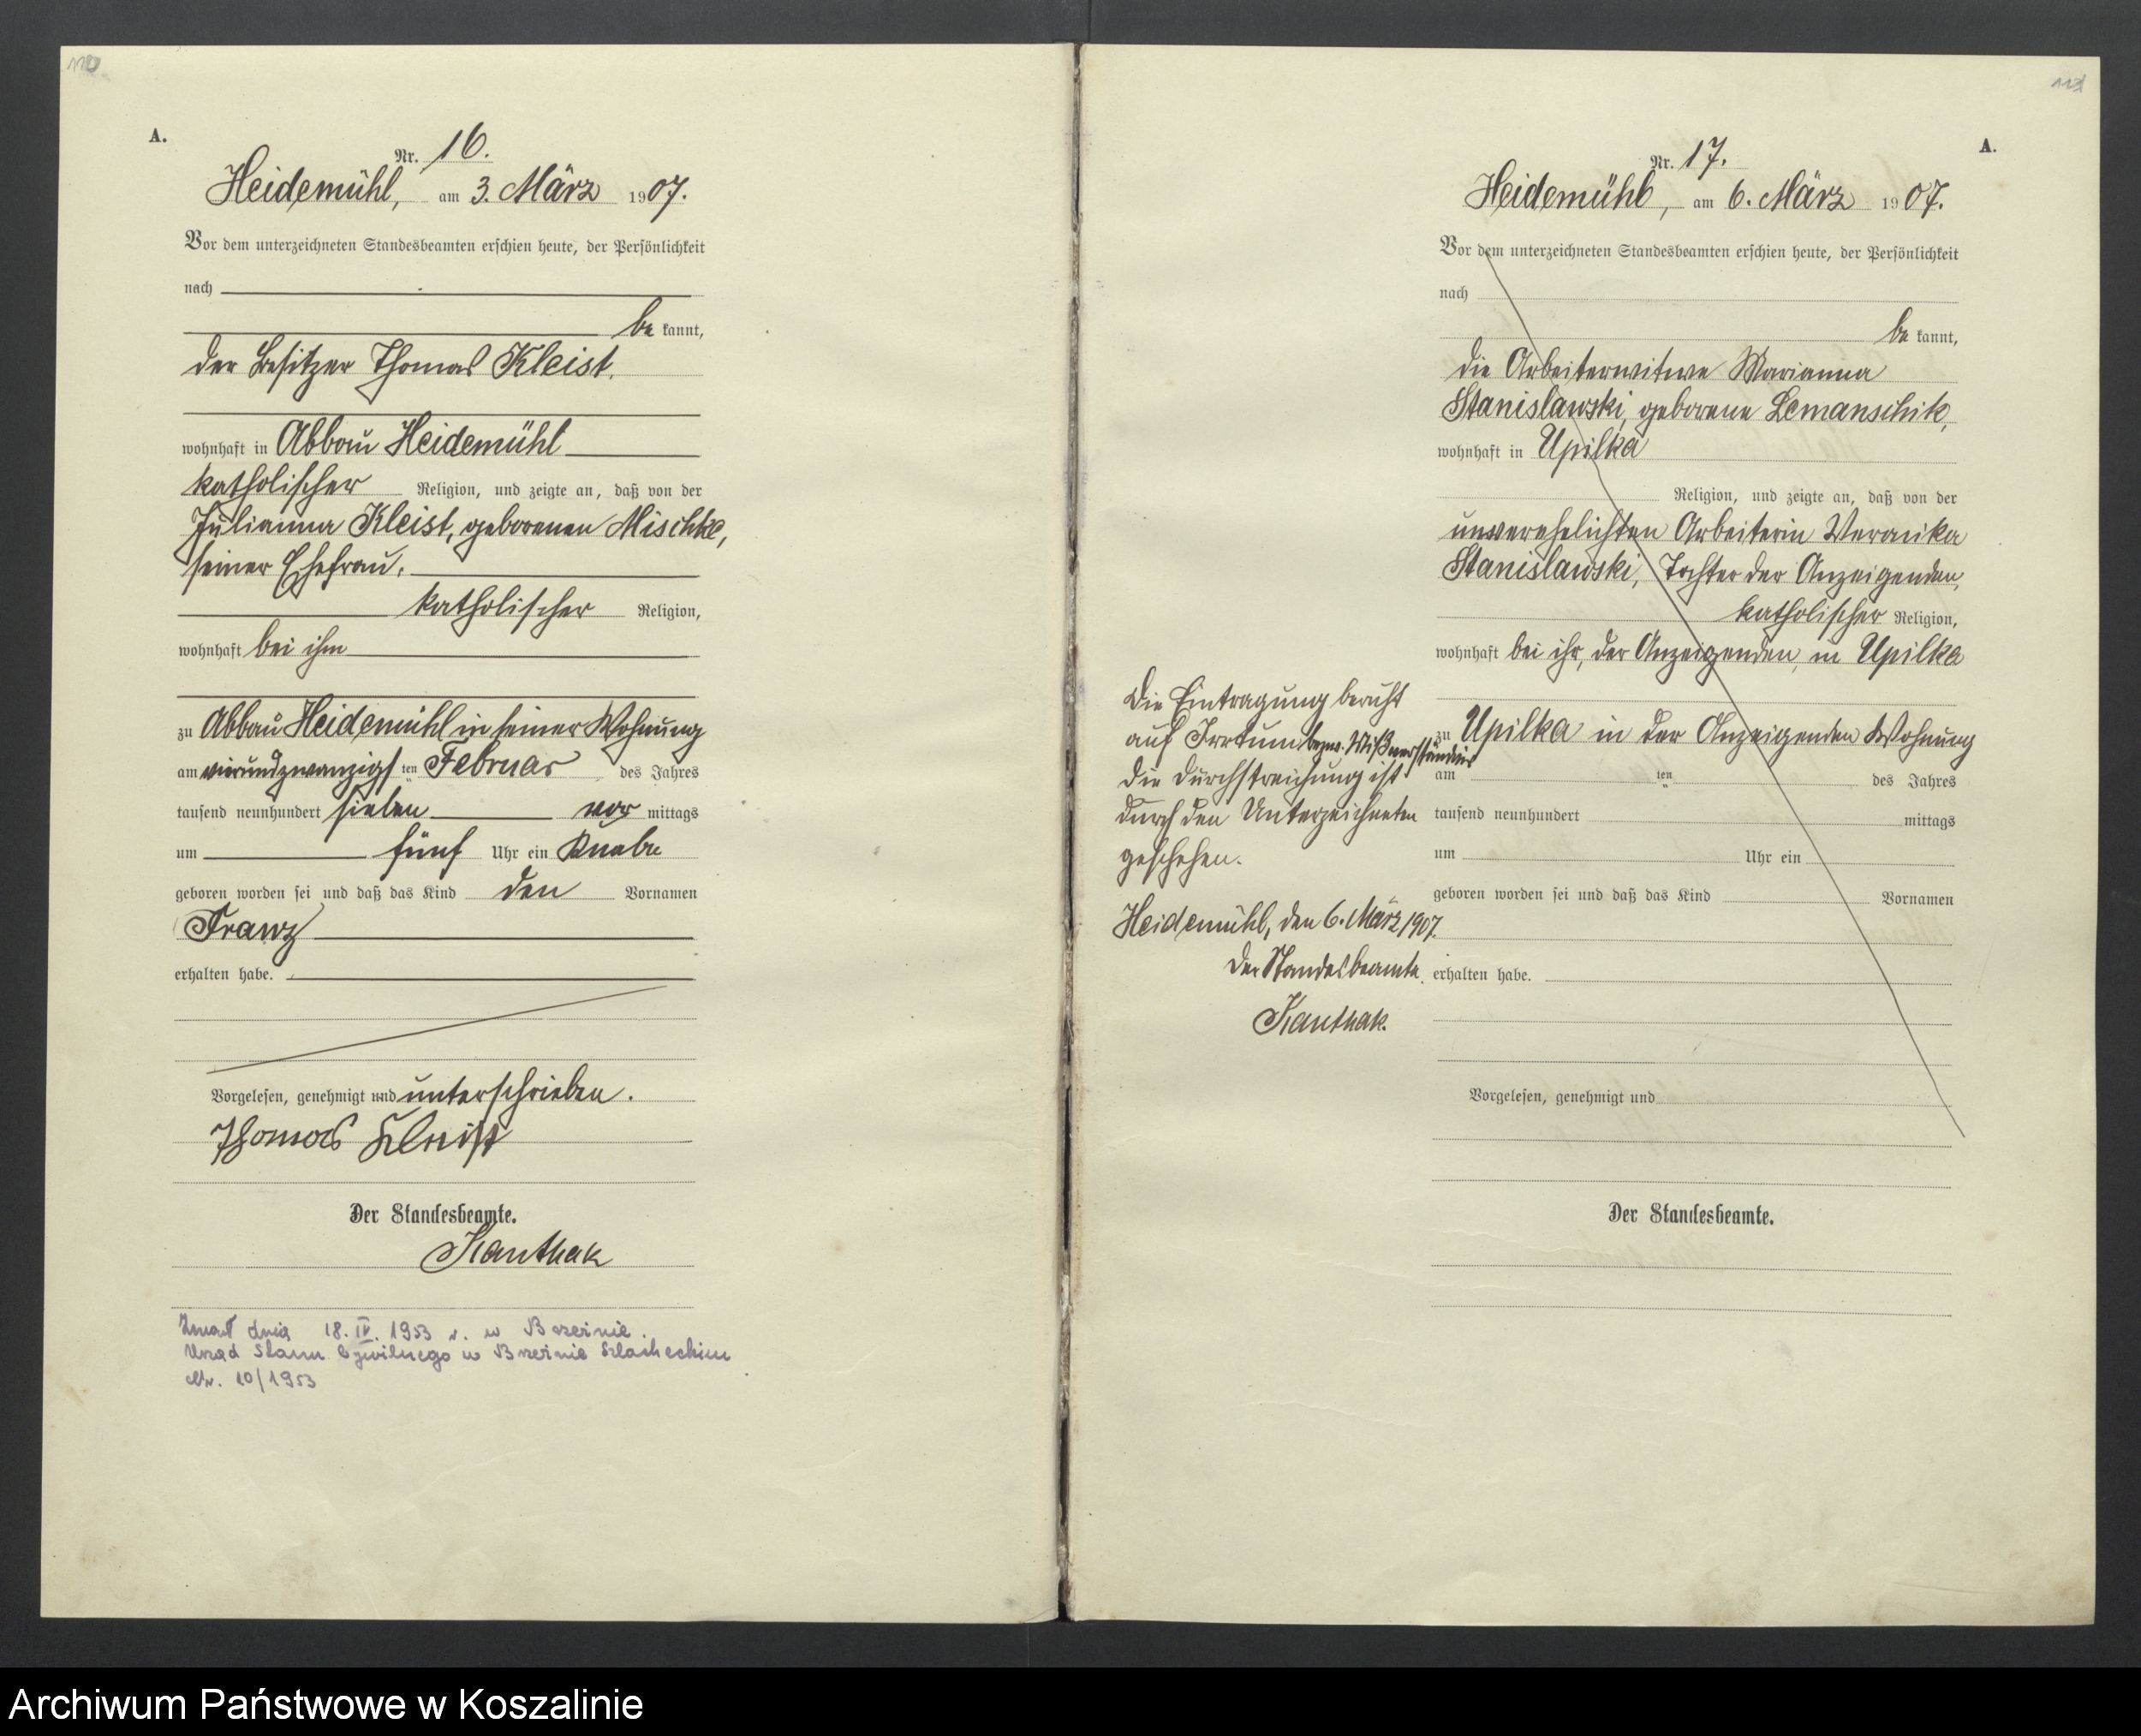 110
A.
Nr. 16.
Heidemühl, am 3. März 1907.
Vor dem unterzeichneten Standesbeamten erschien heute, der Persönlichkeit
nach
be kannt,
der Besitzer Thomas Kleist.
wohnhaft in Abbau Heidemühl
katholischer Religion, und zeigte an, daß von der
Julianna Kleist, geborenen Mischke,
seiner Ehefrau,
katholischer Religion,
wohnhaft bei ihm
zu Abbau Heidemühl in seiner Wohnung
am vierundzwanzigsten Februar des Jahres
tausend neunhundert sieben vor mittags
um fünf Uhr ein Knabe
geboren worden sei und daß das Kind den Vornamen
Franz
erhalten habe.
Vorgelesen, genehmigt und unterschrieben.
Thomas Kleist
Der Standesbeamte.
Kanthak
Zmarł dnia 18. IV. 1953 r. w Brzeźnie.
Urząd Stanu Cywilnego w Brzeźnie Szlacheckim
Nr. 10/1953
A.
Nr. 17.
Heidemühl, am 6. März 1907.
Vor dem unterzeichneten Standesbeamten erschien heute, der Persönlichkeit
nach
be kannt,
die Arbeiterwitwe Marianna
Stanislawski, geborene Lemanschik,
wohnhaft in Upilka
Religion, und zeigte an, daß von der
unverehelichten Arbeiterin Veronika
Stanislawski, Tochter der Anzeigenden,
katholischer Religion,
wohnhaft bei ihr, der Anzeigenden, in Upilka
zu Upilka in der Anzeigenden Wohnung
am ten des Jahres
tausend neunhundert mittags
um Uhr ein
geboren worden sei und daß das Kind Vornamen
erhalten habe.
Vorgelesen, genehmigt und
Der Standesbeamte.
Die Eintragung beruht
auf Irrtum bezw. Mißverständnis
die Durchstreichung ist
durch den Unterzeichneten
geschehen.
Heidemühl, den 6. März 1907.
Der Standesbeamte.
Kanthak.
Archiwum Państwowe w Koszalinie